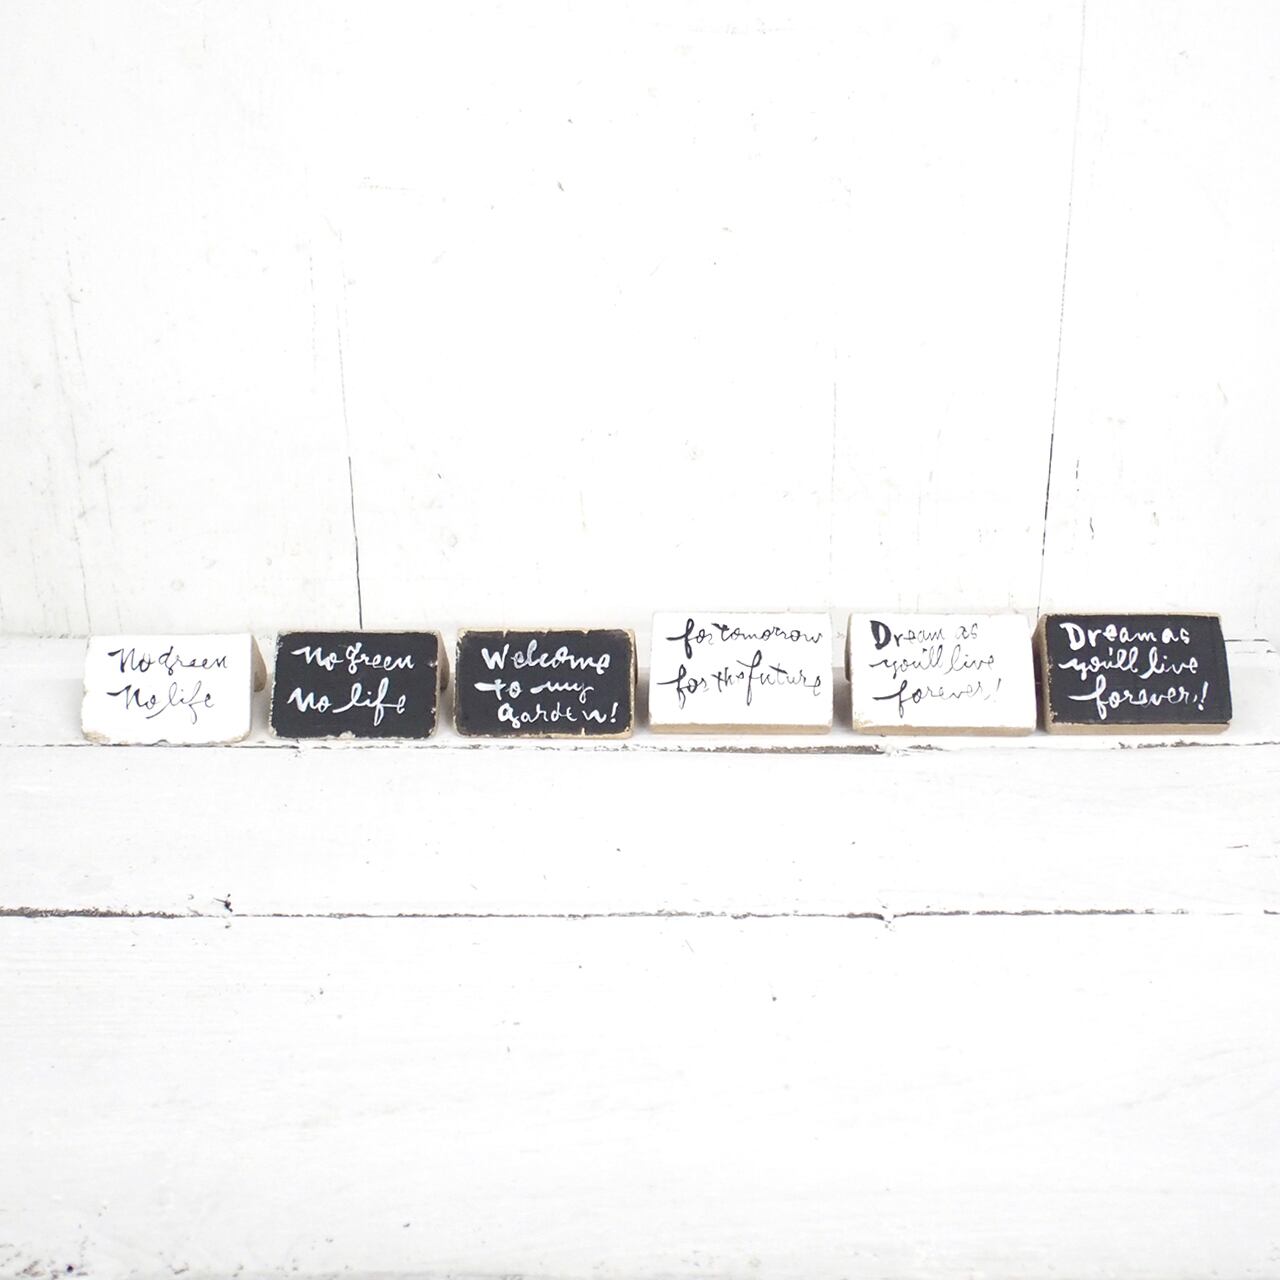 No green
No life
No green
No life
Welcome
to my
garden!
for tomorrow
for the future
Dream as
you'll live
forever!
Dream as
you'll live
forever!